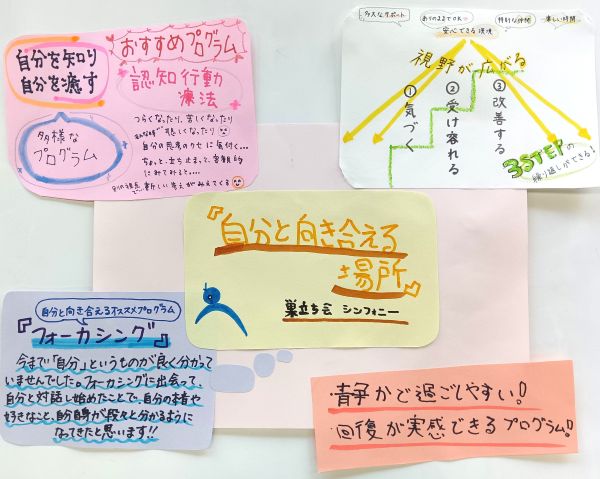 自分を知り
自分を癒す
おすすめプログラム
認知行動
療法
多様な
プログラム
つらくなったり、苦しくなったり
悲しくなったり
自分の思考のクセに気付く…
ちょっと立ち止まって、客観的
にみてみると…
別の視点で、新しい考えがみえてくる
多大なサポート
ありのままでOK
特別な仲間
楽しい時間
安心できる環境
視野が広がる
①気づく
②受け容れる
③改善する
3STEPの
繰り返しができる!
『自分と向き合える
場所』
巣立ち会 シンフォニー
自分と向き合えるオススメプログラム
『フォーカシング』
今まで「自分」というものが良く分かって
いませんでした。フォーカシングに出会って、
自分と対話し始めたことで、自分の本音や
好きなこと、自分自身が段々と分かるように
なってきたと思います!!
・静かで過ごしやすい!
・回復が実感できるプログラム!